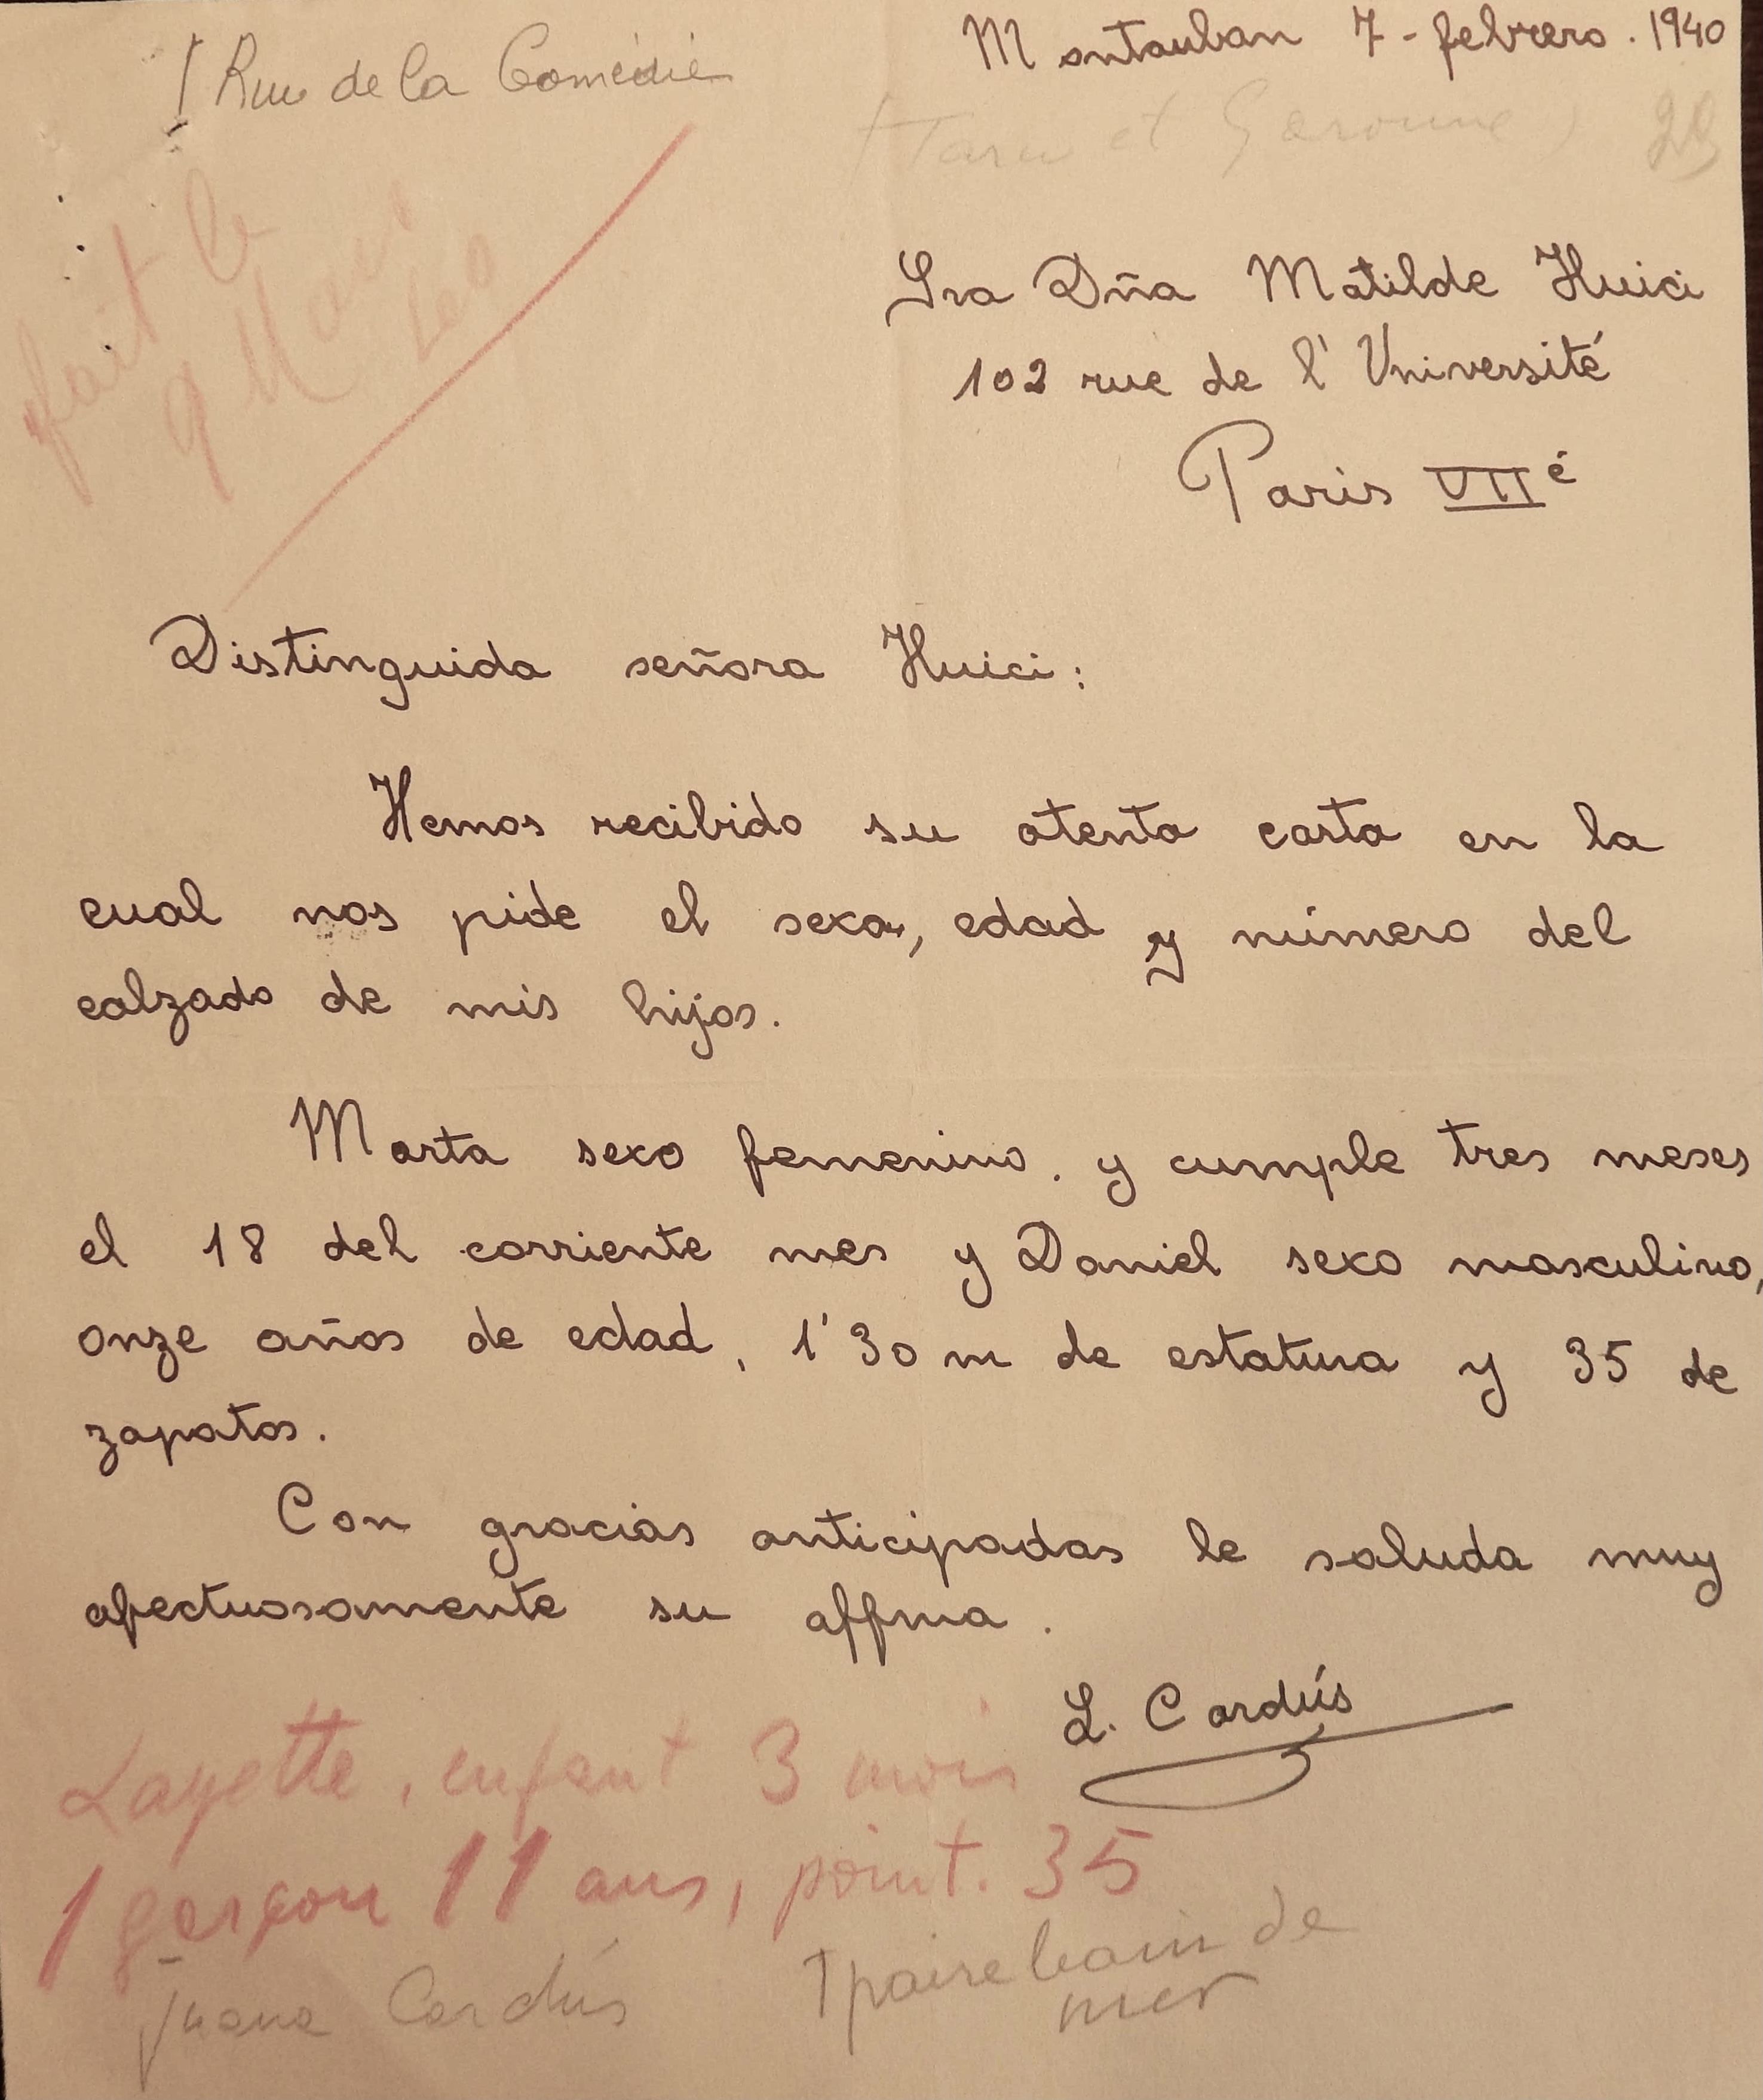 1 Rue de la Comédie
Montauban 7 - febrero . 1940
(Tarn et Garonne) 29
fait le
9 Mars
Sra Dña Matilde Huici
102 rue de l' Université
Paris VIIé
Distinguida señora Huici:
Hemos recibido su atenta carta en la
cual nos pide el sexo, edad y número del
calzado de mis hijos.
Marta sexo femenino. y cumple tres meses
el 18 del corriente mes y Daniel sexo masculino,
onze años de edad, 1'30 m de estatura y 35 de
zapatos.
Con gracias anticipadas le saluda muy
afectuosamente su affma.
L. Cardús
Layette, enfant 3 mois
1 garçon 11 ans, point. 35
Juana Cardús
1 paire bain de
mer